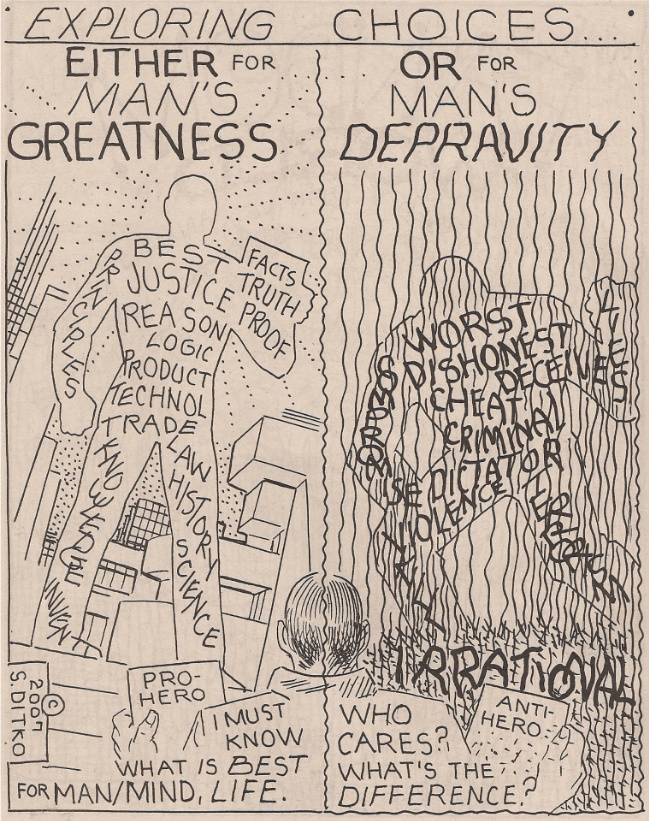 EXPLORING CHOICES...
EITHER FOR
MAN'S
GREATNESS
BEST
PRINCIPLES
JUSTICE
FACTS
TRUTH
PROOF
REASON
LOGIC
PRODUCT
TECHNOL
TRADE
KNOWLEDGE
INVENT
LAW
HISTORY
SCIENCE
PRO-
HERO
I MUST
KNOW
WHAT IS BEST
FOR MAN/MIND, LIFE.
© 2007
S. DITKO
OR FOR
MAN'S
DEPRAVITY
WORST
DISHONEST
DECEIVES
LIES
CHEAT
CRIMINAL
COMPROMISE
DICTATOR
VIOLENCE
KILL
IRRATIONAL
ANTI-
HERO
WHO
CARES?
WHAT'S THE
DIFFERENCE?